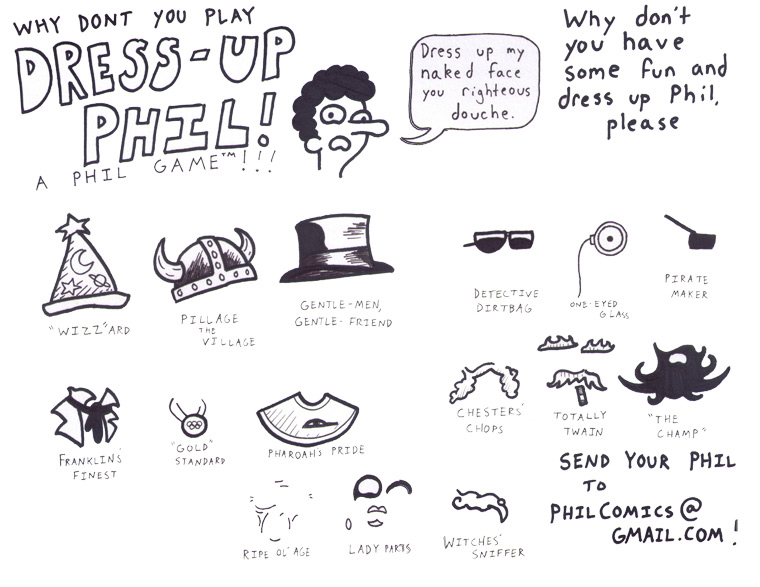 WHY DONT YOU PLAY
DRESS-UP
PHIL!
A PHIL GAME™!!!
Dress up my
naked face
you righteous
douche.
Why don't
you have
some fun and
dress up Phil,
please
"WIZZ"ARD
PILLAGE
THE
VILLAGE
GENTLE-MEN,
GENTLE-FRIEND
DETECTIVE
DIRTBAG
ONE-EYED
GLASS
PIRATE
MAKER
FRANKLIN'S
FINEST
"GOLD"
STANDARD
PHAROAH'S PRIDE
CHESTERS'
CHOPS
TOTALLY
TWAIN
"THE
CHAMP"
RIPE OL' AGE
LADY PARTS
WITCHES'
SNIFFER
SEND YOUR PHIL
TO
PHILCOMICS@
GMAIL.COM!